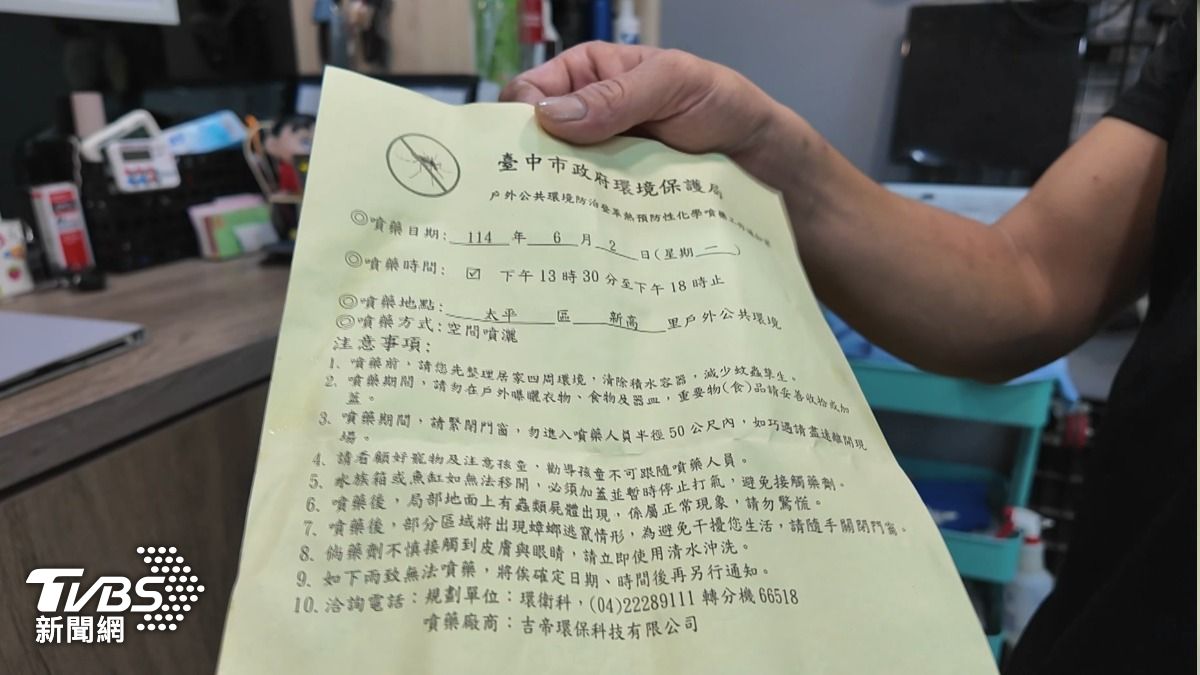 臺中市政府環境保護局
戶外公共環境防治登革熱預防性化學噴藥
◎噴藥日期: 114 年 6 月 2 日(星期 一 )
◎噴藥時間: ☑ 下午 13 時 30 分至下午 18 時止
◎噴藥地點: 太平 區 新高 里戶外公共環境
◎噴藥方式:空間噴灑
注意事項:
1、噴藥前,請您先整理居家四周環境,清除積水容器,減少蚊蟲孳生。
2、噴藥期間,請勿在戶外曝曬衣物、食物及器皿,重要物(食)品請妥善收拾或加
蓋。
3、噴藥期間,請緊閉門窗,勿進入噴藥人員半徑50公尺內,如巧遇請盡速離開現
場。
4、請看顧好寵物及注意孩童,勸導孩童不可跟隨噴藥人員。
5、水族箱或魚缸如無法移開,必須加蓋並暫時停止打氣,避免接觸藥劑。
6、噴藥後,局部地面上有蟲類屍體出現,係屬正常現象,請勿驚慌。
7、噴藥後,部分區域將出現蟑螂逃竄情形,為避免干擾您生活,請隨手關閉門窗。
8、倘藥劑不慎接觸到皮膚與眼睛,請立即使用清水沖洗。
9、如下雨致無法噴藥,將俟確定日期、時間後再另行通知。
10、洽詢電話:規劃單位:環衛科,(04)22289111 轉分機 66518
噴藥廠商:吉帝環保科技有限公司
TVBS
新聞網